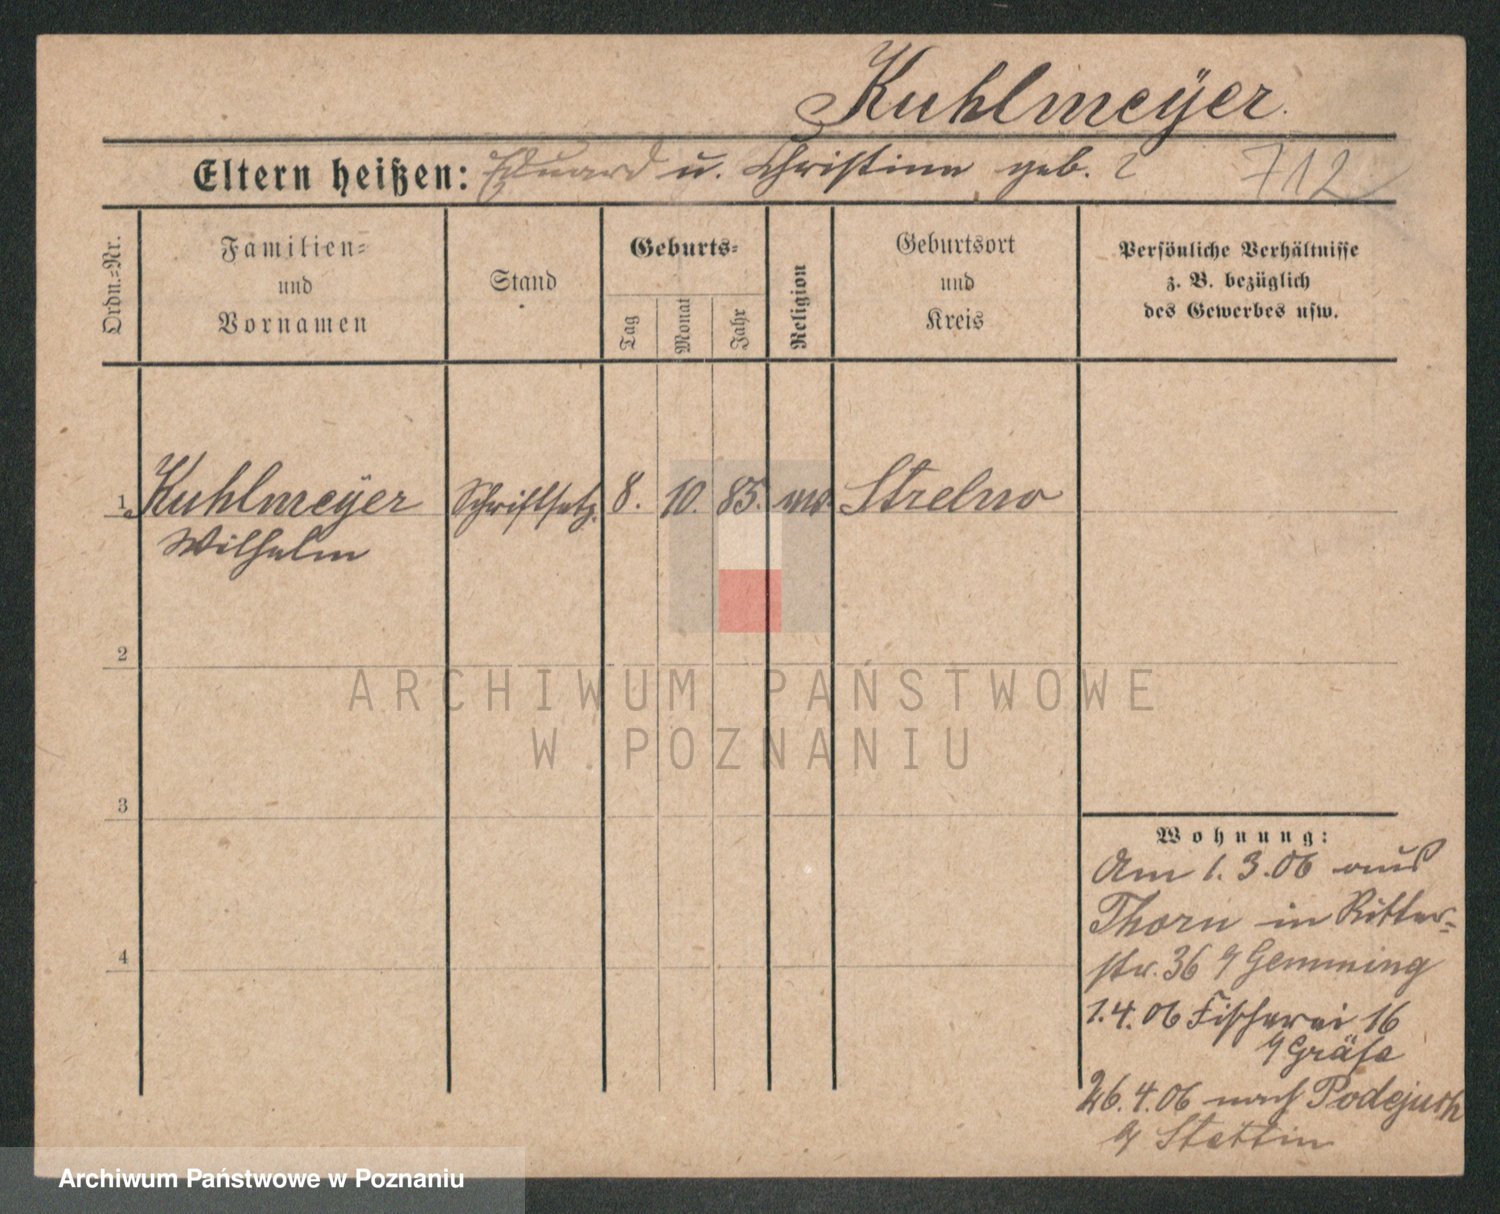 Kuhlmeÿer.
Eltern heißen: Eduard u. Christine geb. ? 712
Ordn.-Nr.
Familien-
und
Vornamen
Stand
Geburts-
Tag
Monat
Jahr
Religion
Geburtsort
und
Kreis
Persönliche Verhältnisse
z. B. bezüglich
des Gewerbes usw.
1 Kuhlmeÿer Schriftsetz. 8. 10. 85. ev. Strelno
Wilhelm
2
3
4
Wohnung:
Am 1.3.06 aus
Thorn in Ritter-
str. 36 Gemming
1.4.06 Fischerei 16
Gräfe
26.4.06 nach Podejuch
Stettin
ARCHIWUM PAŃSTWOWE
W POZNANIU
Archiwum Państwowe w Poznaniu